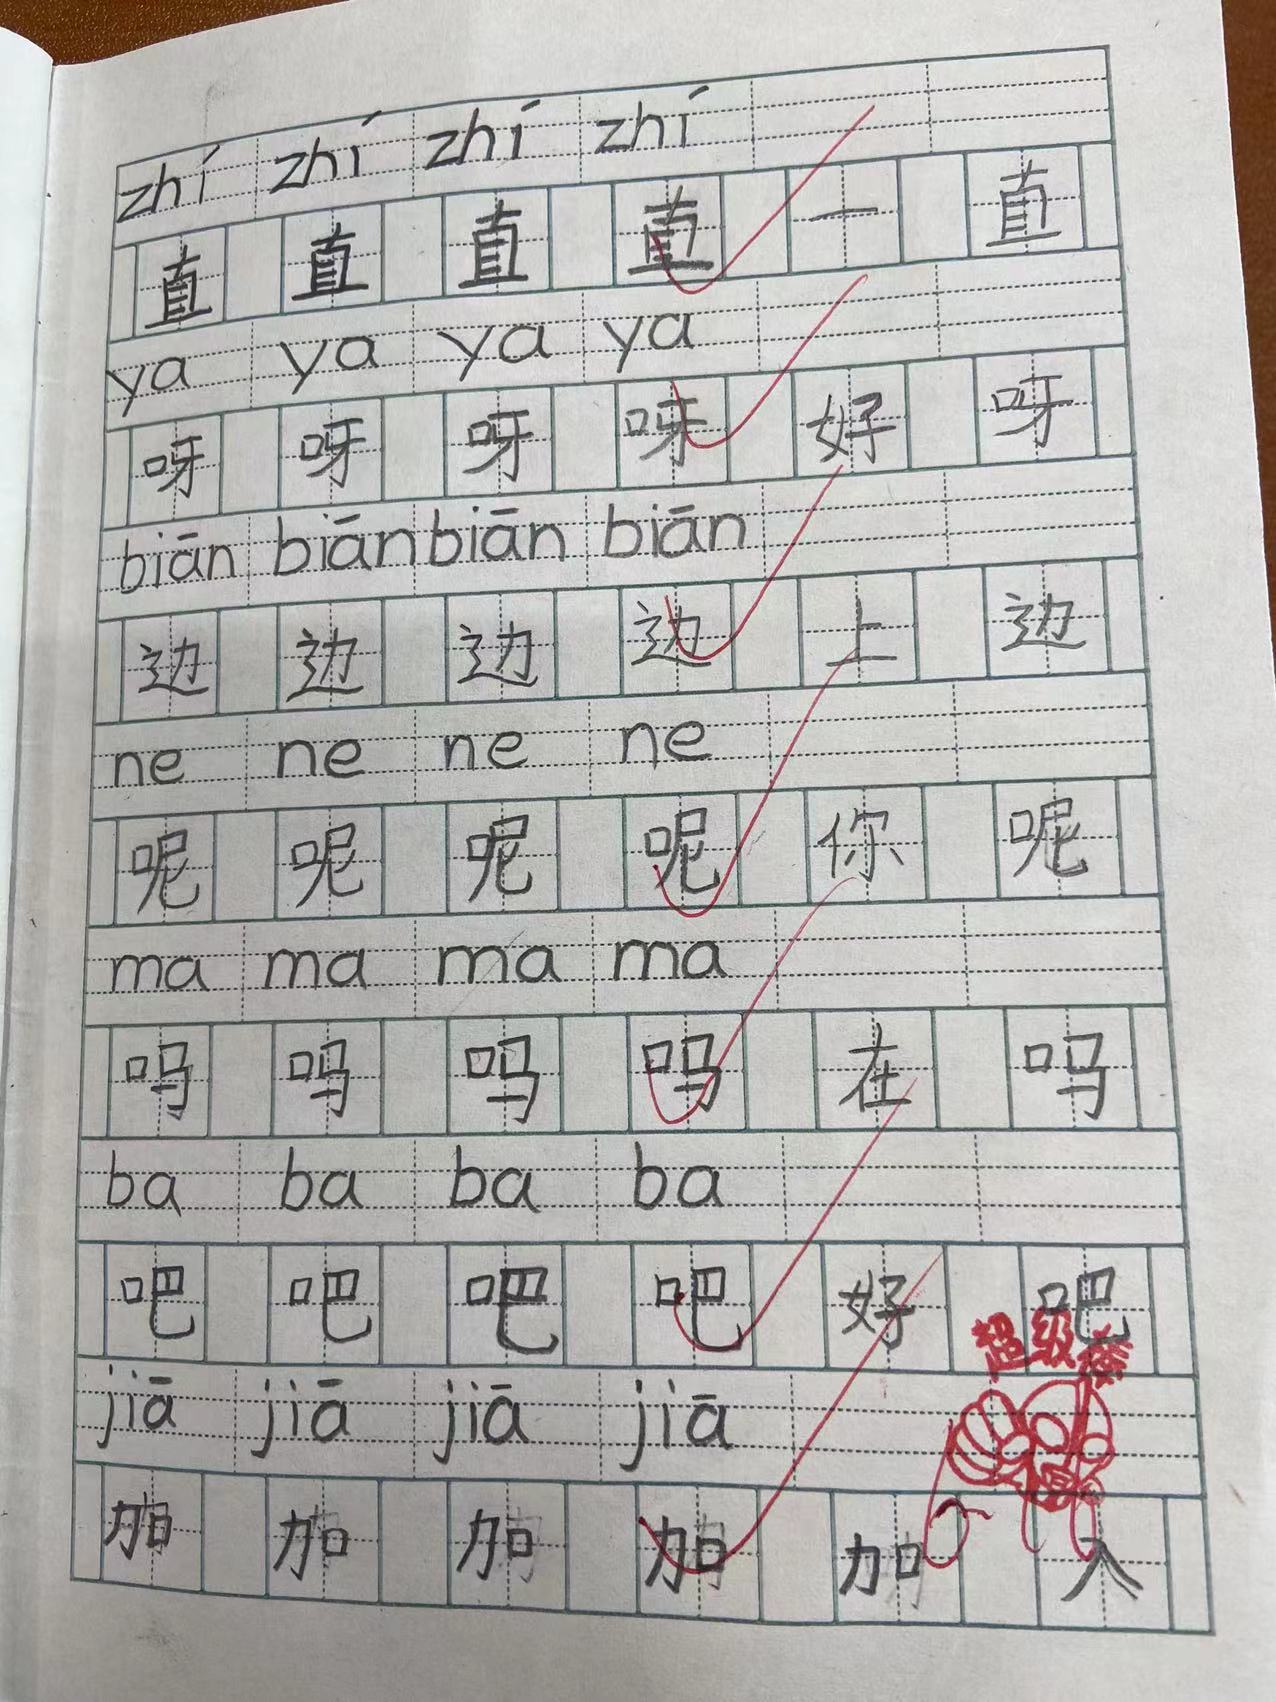 zhí zhí zhí zhí
直 直 直 直 一 直
ya ya ya ya
呀 呀 呀 呀 好 呀
biān biān biān biān
边 边 边 边 上 边
ne ne ne ne
呢 呢 呢 呢 你 呢
ma ma ma ma
吗 吗 吗 吗 在 吗
ba ba ba ba
吧 吧 吧 吧 好 吧
超级棒
jiā jiā jiā jiā
加 加 加 加 加 入